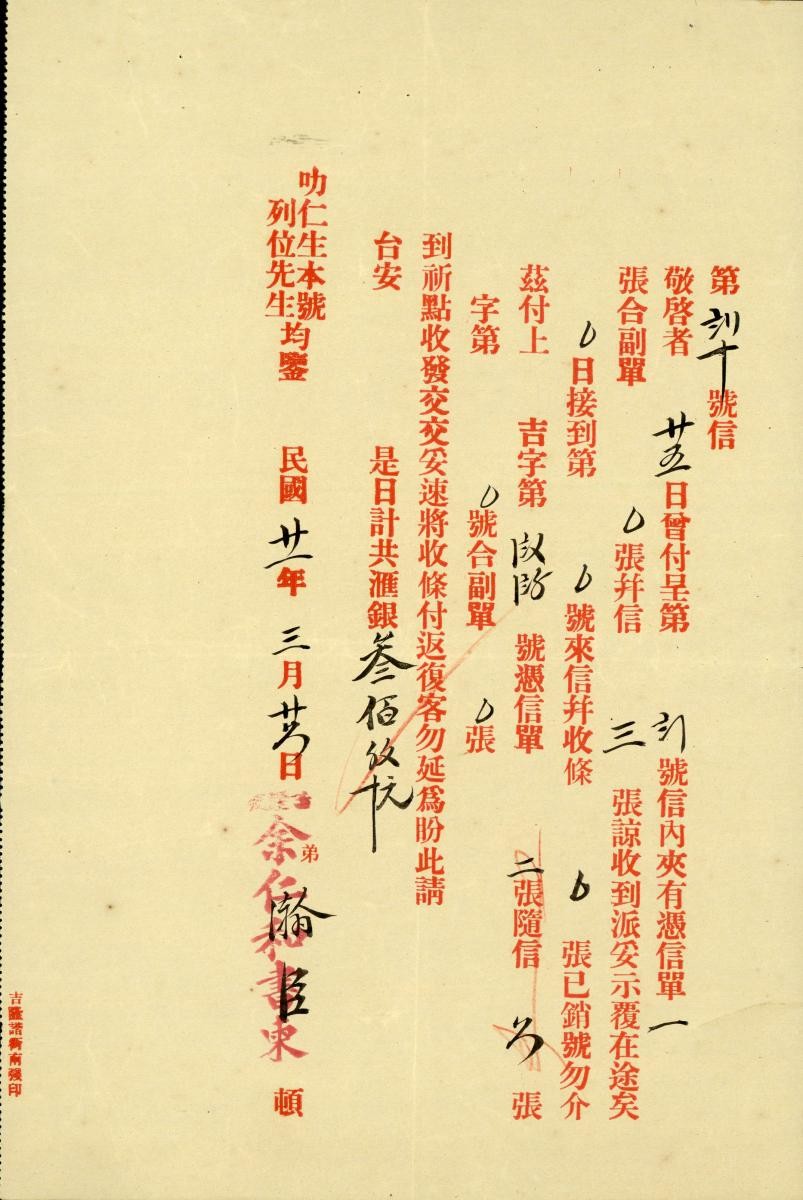 第 十 號信
敬啓者 廿五日曾付呈第 號信內夾有憑信單一
張合副單 〇張幷信 三 張諒收到派妥示覆在途矣
〇日接到第 〇號來信幷收條 〇 張已銷號勿介
茲付上 吉字第 號憑信單 二張隨信 張
字第 〇號合副單 〇張
到祈點收發交交妥速將收條付返復客勿延爲盼此請
台安 是日計共滙銀叁佰 十元
叻仁生本號
列位先生均鑒 民國廿一年 三月 日 弟 瀚臣 頓
余仁和書柬
吉隆諧街南強印